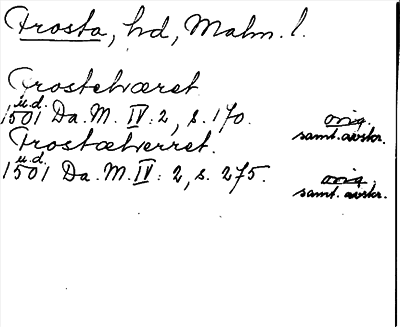 Frosta, hd, Malm. l.
Frosteheret
u.d.
1501 Da. M. IV: 2, s. 170. orig.
samt. avskr.
Frostæherret.
u.d.
1501 Da. M. IV: 2, s. 275. orig.
samt. avskr.